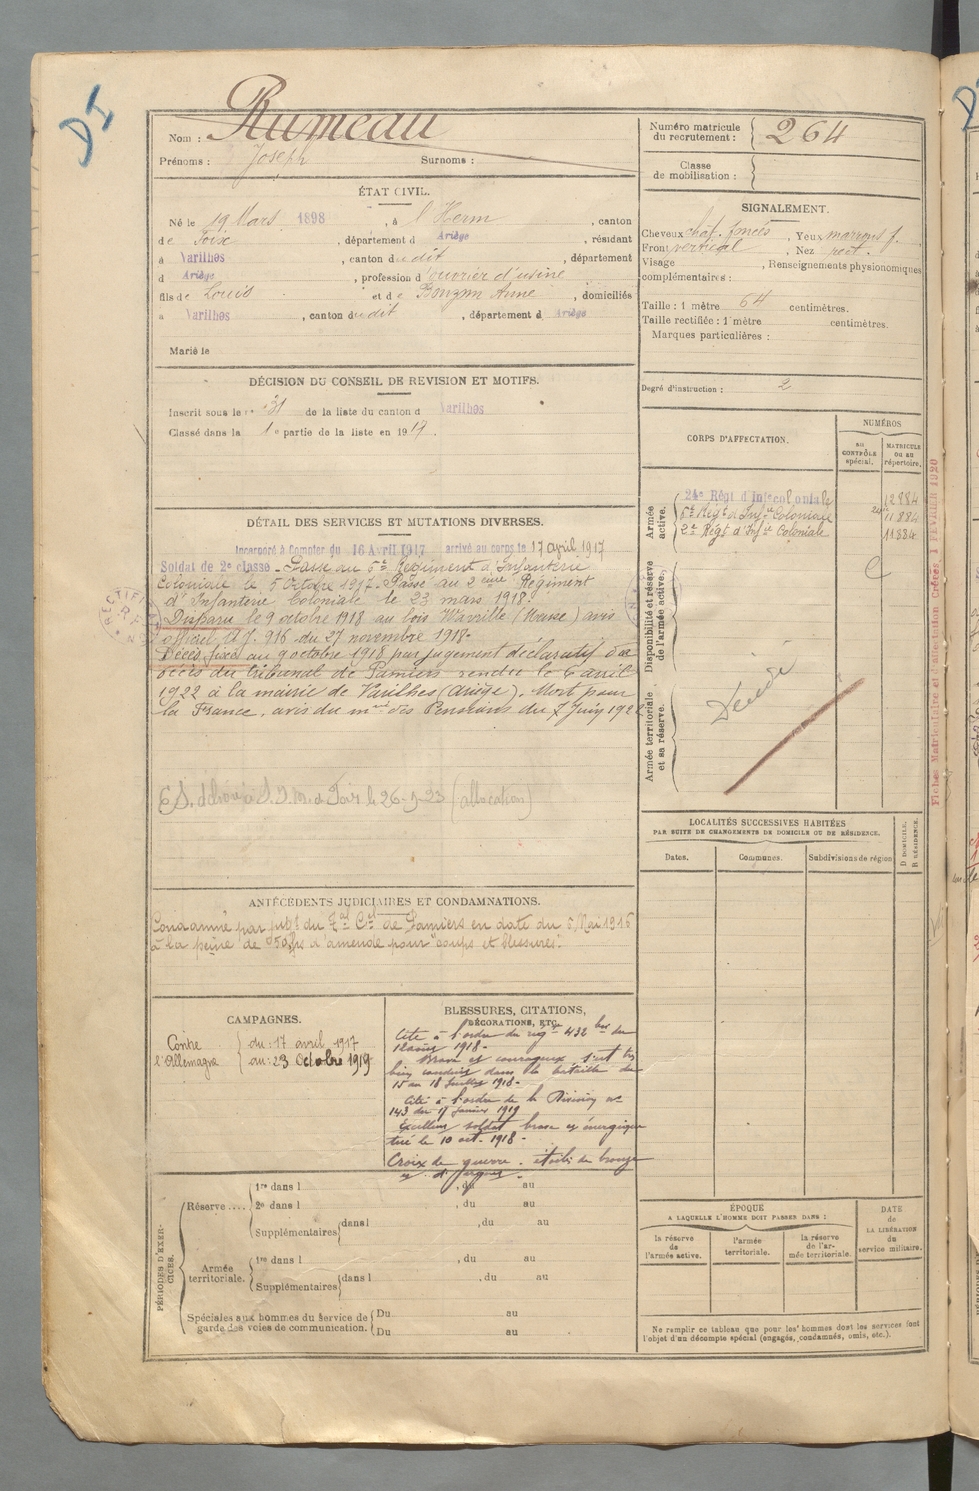 DI
Nom : Rumeau
Prénoms : Joseph Surnoms :
Numéro matricule du recrutement : 264
Classe de mobilisation :
ÉTAT CIVIL.
Né le 19 Mars 1898, à l'Herm, canton
de Foix, département d Ariège, résidant
à Varilhes, canton dudit, département
d Ariège, profession d'ouvrier d'usine
fils de Louis et de Bonzom Anne, domiciliés
à Varilhes, canton dudit, département d Ariège
Marié le
SIGNALEMENT.
Cheveux chat. foncés, Yeux marrons f.
Front vertical, Nez rect.
Visage , Renseignements physionomiques
complémentaires :
Taille : 1 mètre 64 centimètres.
Taille rectifiée : 1 mètre centimètres.
Marques particulières :
Degré d'instruction : 2
DÉCISION DU CONSEIL DE REVISION ET MOTIFS.
Inscrit sous le n° 31 de la liste du canton d Varilhes
Classé dans la 1e partie de la liste en 1917.
CORPS D'AFFECTATION.
NUMÉROS
au CONTRÔLE spécial.
MATRICULE ou au répertoire.
Armée active.
24e Régt d'Infie coloniale 12984
5e Régt d'Infie Coloniale 11884
2e Régt d'Infie Coloniale 11884
Disponibilité et réserve de l'armée active.
Armée territoriale et sa réserve.
Décédé
DÉTAIL DES SERVICES ET MUTATIONS DIVERSES.
Incorporé à Compter du 16 Avril 1917 arrivé au corps le 17 avril 1917
Soldat de 2e classe - Passé au 5e Régiment d'Infanterie
Coloniale le 5 Octobre 1917. Passé au 2eme Régiment
d'Infanterie Coloniale le 23 mars 1918.
Disparu le 9 octobre 1918 au bois Wavrille (Meuse) avis
officiel A.J. 916 du 27 novembre 1918-
Décès fixé au 9 octobre 1918 par jugement déclaratif de
décès du tribunal de Pamiers rendu le 6 avril
1922 à la mairie de Varilhes (Ariège). Mort pour
la France, avis du mre des Pensions du 7 Juin 1922
RECTIFI
R.F.
Foix le 26-9-23 (allocation)
Fiches Matriculaire et attestation Créées 1 FEVRIER 1920
LOCALITÉS SUCCESSIVES HABITÉES
PAR SUITE DE CHANGEMENTS DE DOMICILE OU DE RÉSIDENCE.
Dates.
Communes.
Subdivisions de région
D DOMICILE.
R RÉSIDENCE.
ANTÉCÉDENTS JUDICIAIRES ET CONDAMNATIONS.
Condamné par jugt du Tal Cel de Pamiers en date du 5 Mai 1916
à la peine de 50 frs d'amende pour "coups et blessures".
CAMPAGNES.
Contre l'Allemagne
du : 17 avril 1917
au : 23 Octobre 1919
BLESSURES, CITATIONS,
DÉCORATIONS, ETC.
Cité à l'ordre du régt 432 bis du
août 1918-
Brave et courageux, s'est très
bien conduit dans la bataille du
15 au 18 Juillet 1918-
Cité à l'ordre de la Division no
143 du 17 Janvier 1919
Excellent soldat brave et énergique
tué le 10 oct. 1918-
Croix de guerre. étoile de bronze
et d'argent.
PÉRIODES D'EXERCICES.
Réserve....
1re dans l , du au
2e dans l , du au
Supplémentaires dans l , du au
Armée territoriale.
1re dans l , du au
Supplémentaires dans l , du au
Spéciales aux hommes du service de garde des voies de communication.
Du au
Du au
ÉPOQUE
A LAQUELLE L'HOMME DOIT PASSER DANS :
la réserve de l'armée active.
l'armée territoriale.
la réserve de l'armée territoriale.
DATE de LA LIBÉRATION du service militaire.
Ne remplir ce tableau que pour les hommes dont les services font
l'objet d'un décompte spécial (engagés, condamnés, omis, etc.).